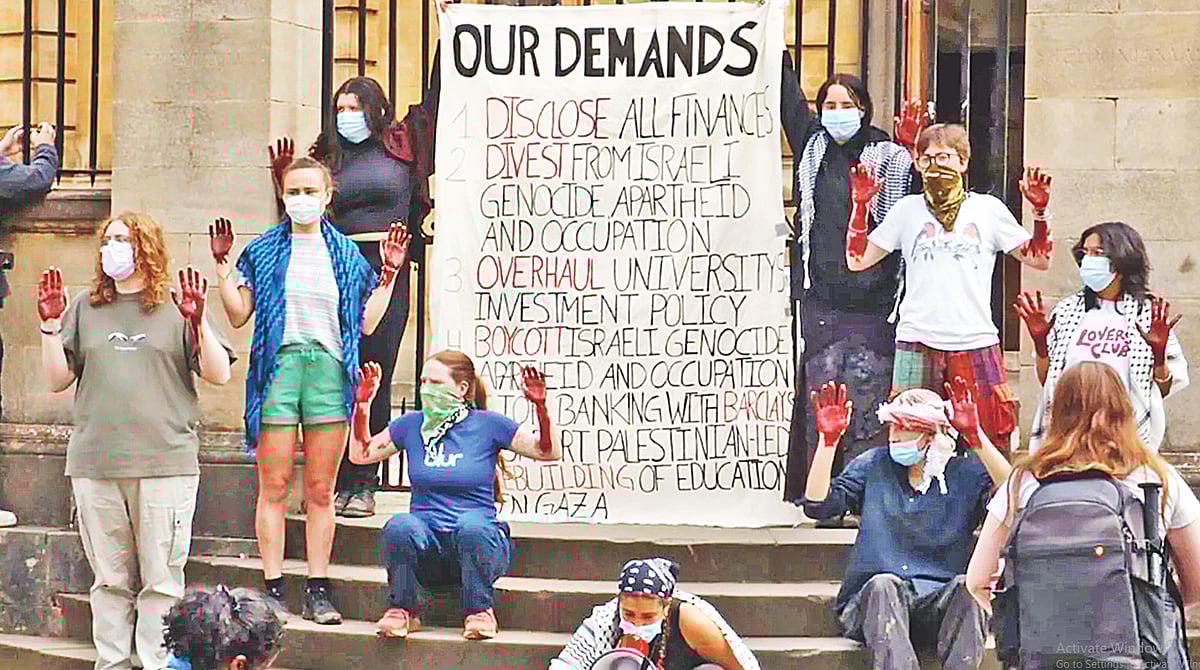 OUR DEMANDS
1 DISCLOSE ALL FINANCES
2 DIVEST FROM ISRAELI
GENOCIDE APARTHEID
AND OCCUPATION
3 OVERHAUL UNIVERSITY'S
INVESTMENT POLICY
4 BOYCOTT ISRAELI GENOCIDE
AND OCCUPATION
BANKING WITH BARCLAYS
PALESTINIAN-LED
OF EDUCATION
IN GAZA
blur
LOVERS
CLUB
Activate Window
Go to Settings